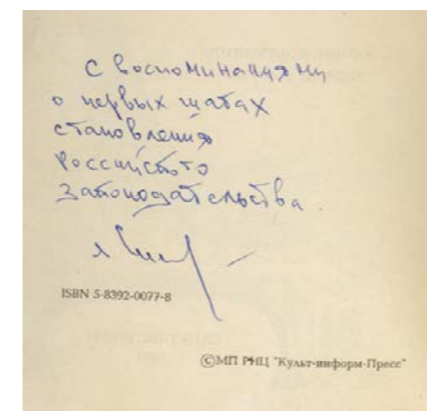 С воспоминаниями
о первых шагах
становления
Российского
законодательства.
ISBN 5-8392-0077-8
©МП РИЦ "Культ-информ-Пресс"